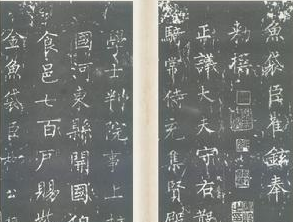 魚袋臣崔鉉奉
敕撰
正議大夫守右散
騎常侍充集賢殿
學士判院事上柱
國河東縣開國伯
食邑七百戶賜
金魚袋臣柳公